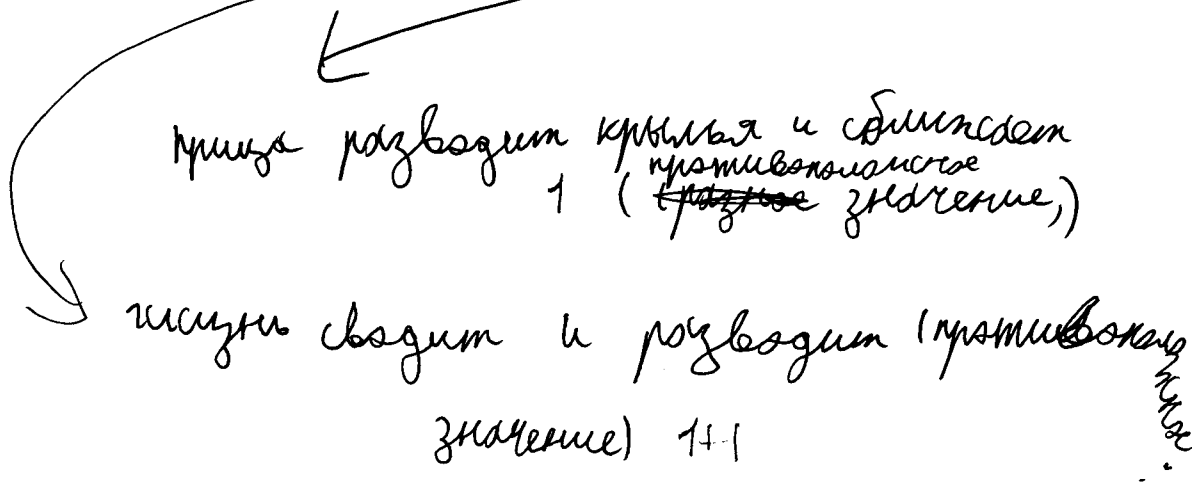 прица разводит крылья и сближает
противоположное
1 (разное значение,)
жизнь сводит и разводит (противоположное
значение) 1+1